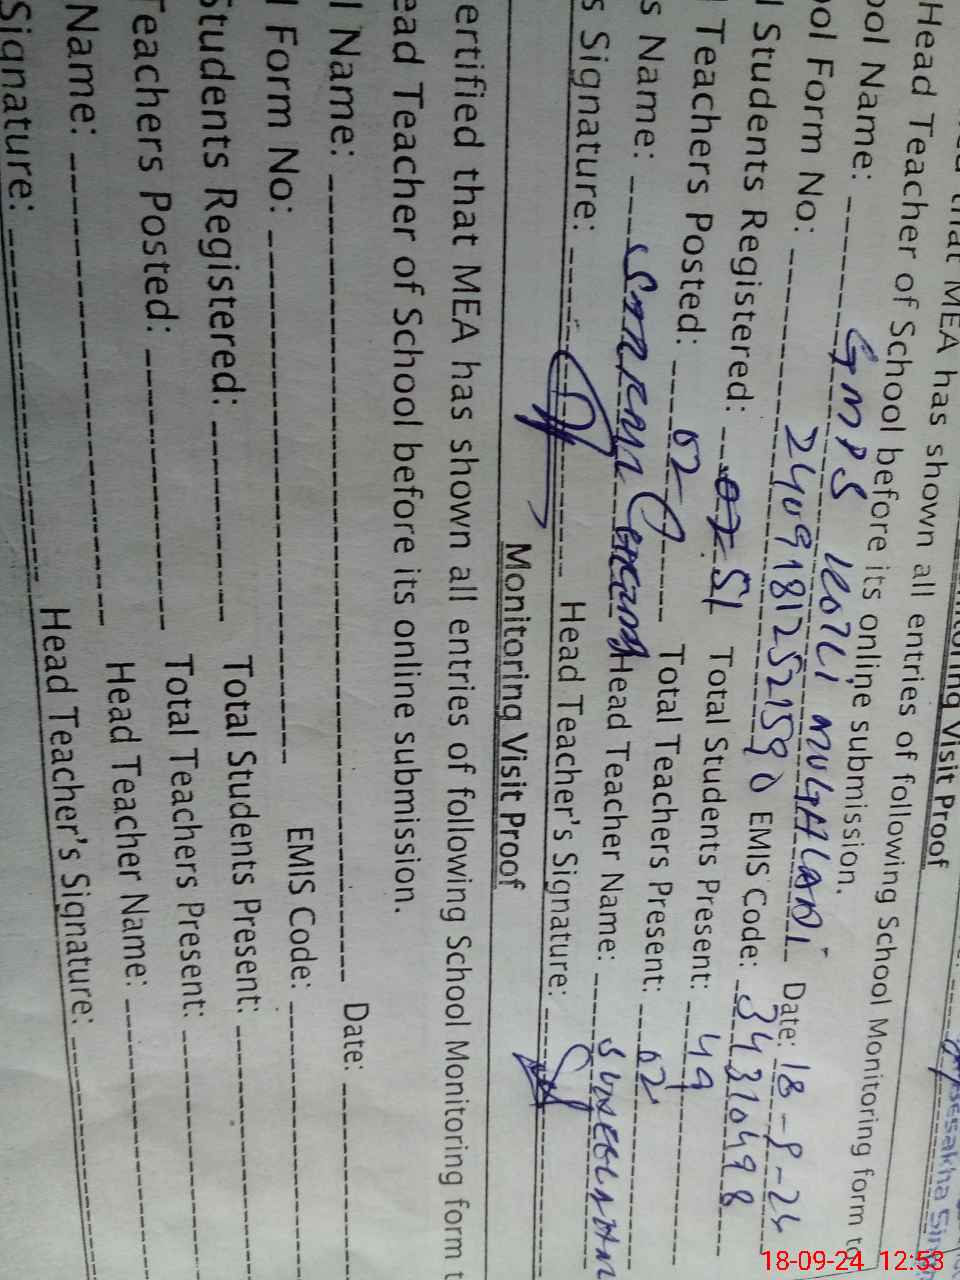 Monitoring Visit Proof
that MEA has shown all entries of following School Monitoring form to
Head Teacher of School before its online submission.
ool Name: GMPS KOTLI MUGHLANI Date: 18-9-24
ool Form No: 2409181252590 EMIS Code: 34310498
l Students Registered: 51 Total Students Present: 49
l Teachers Posted: 02 Total Teachers Present: 02
s Name: Head Teacher Name:
s Signature: Head Teacher's Signature:
Monitoring Visit Proof
ertified that MEA has shown all entries of following School Monitoring form t
ead Teacher of School before its online submission.
l Name: Date:
l Form No: EMIS Code:
Students Registered: Total Students Present:
Teachers Posted: Total Teachers Present:
Name: Head Teacher Name:
Signature: Head Teacher's Signature:
18-09-24 12:53